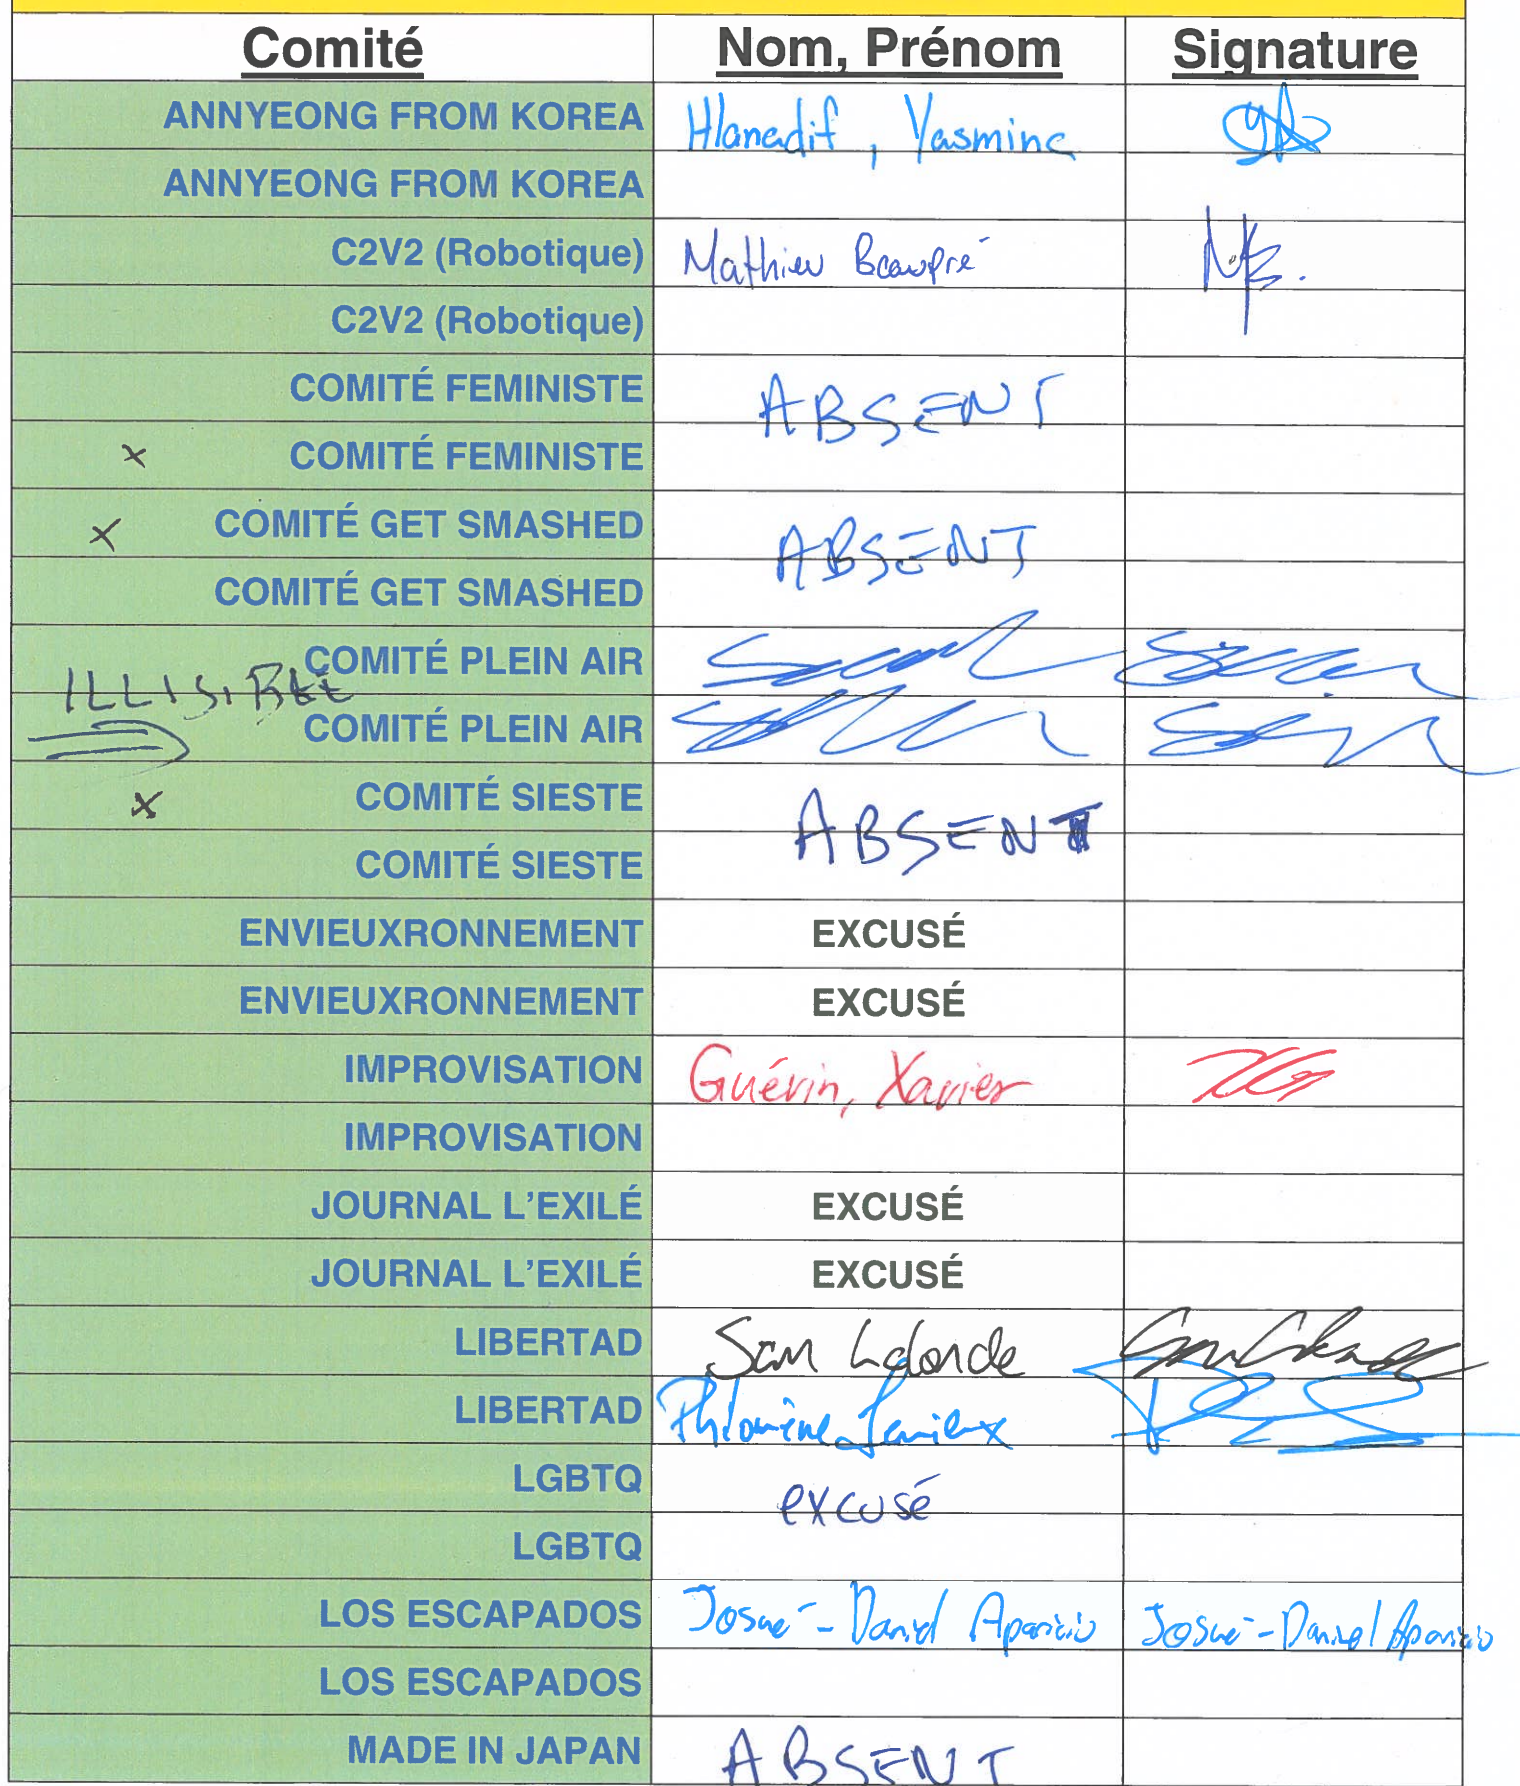 Comité Nom, Prénom Signature
ANNYEONG FROM KOREA Hlanadif, Yasmine
ANNYEONG FROM KOREA
C2V2 (Robotique) Mathieu Beaupré
C2V2 (Robotique)
COMITÉ FEMINISTE ABSENT
x COMITÉ FEMINISTE
x COMITÉ GET SMASHED ABSENT
COMITÉ GET SMASHED
COMITÉ PLEIN AIR
ILLISIBLE
COMITÉ PLEIN AIR
x COMITÉ SIESTE ABSENT
COMITÉ SIESTE
ENVIEUXRONNEMENT EXCUSÉ
ENVIEUXRONNEMENT EXCUSÉ
IMPROVISATION Guévin, Xavier
IMPROVISATION
JOURNAL L'EXILÉ EXCUSÉ
JOURNAL L'EXILÉ EXCUSÉ
LIBERTAD Sam Lalonde
LIBERTAD Philomène
LGBTQ excusé
LGBTQ
LOS ESCAPADOS Josué-Daniel Aparicio Josué-Daniel Aparicio
LOS ESCAPADOS
MADE IN JAPAN ABSENT